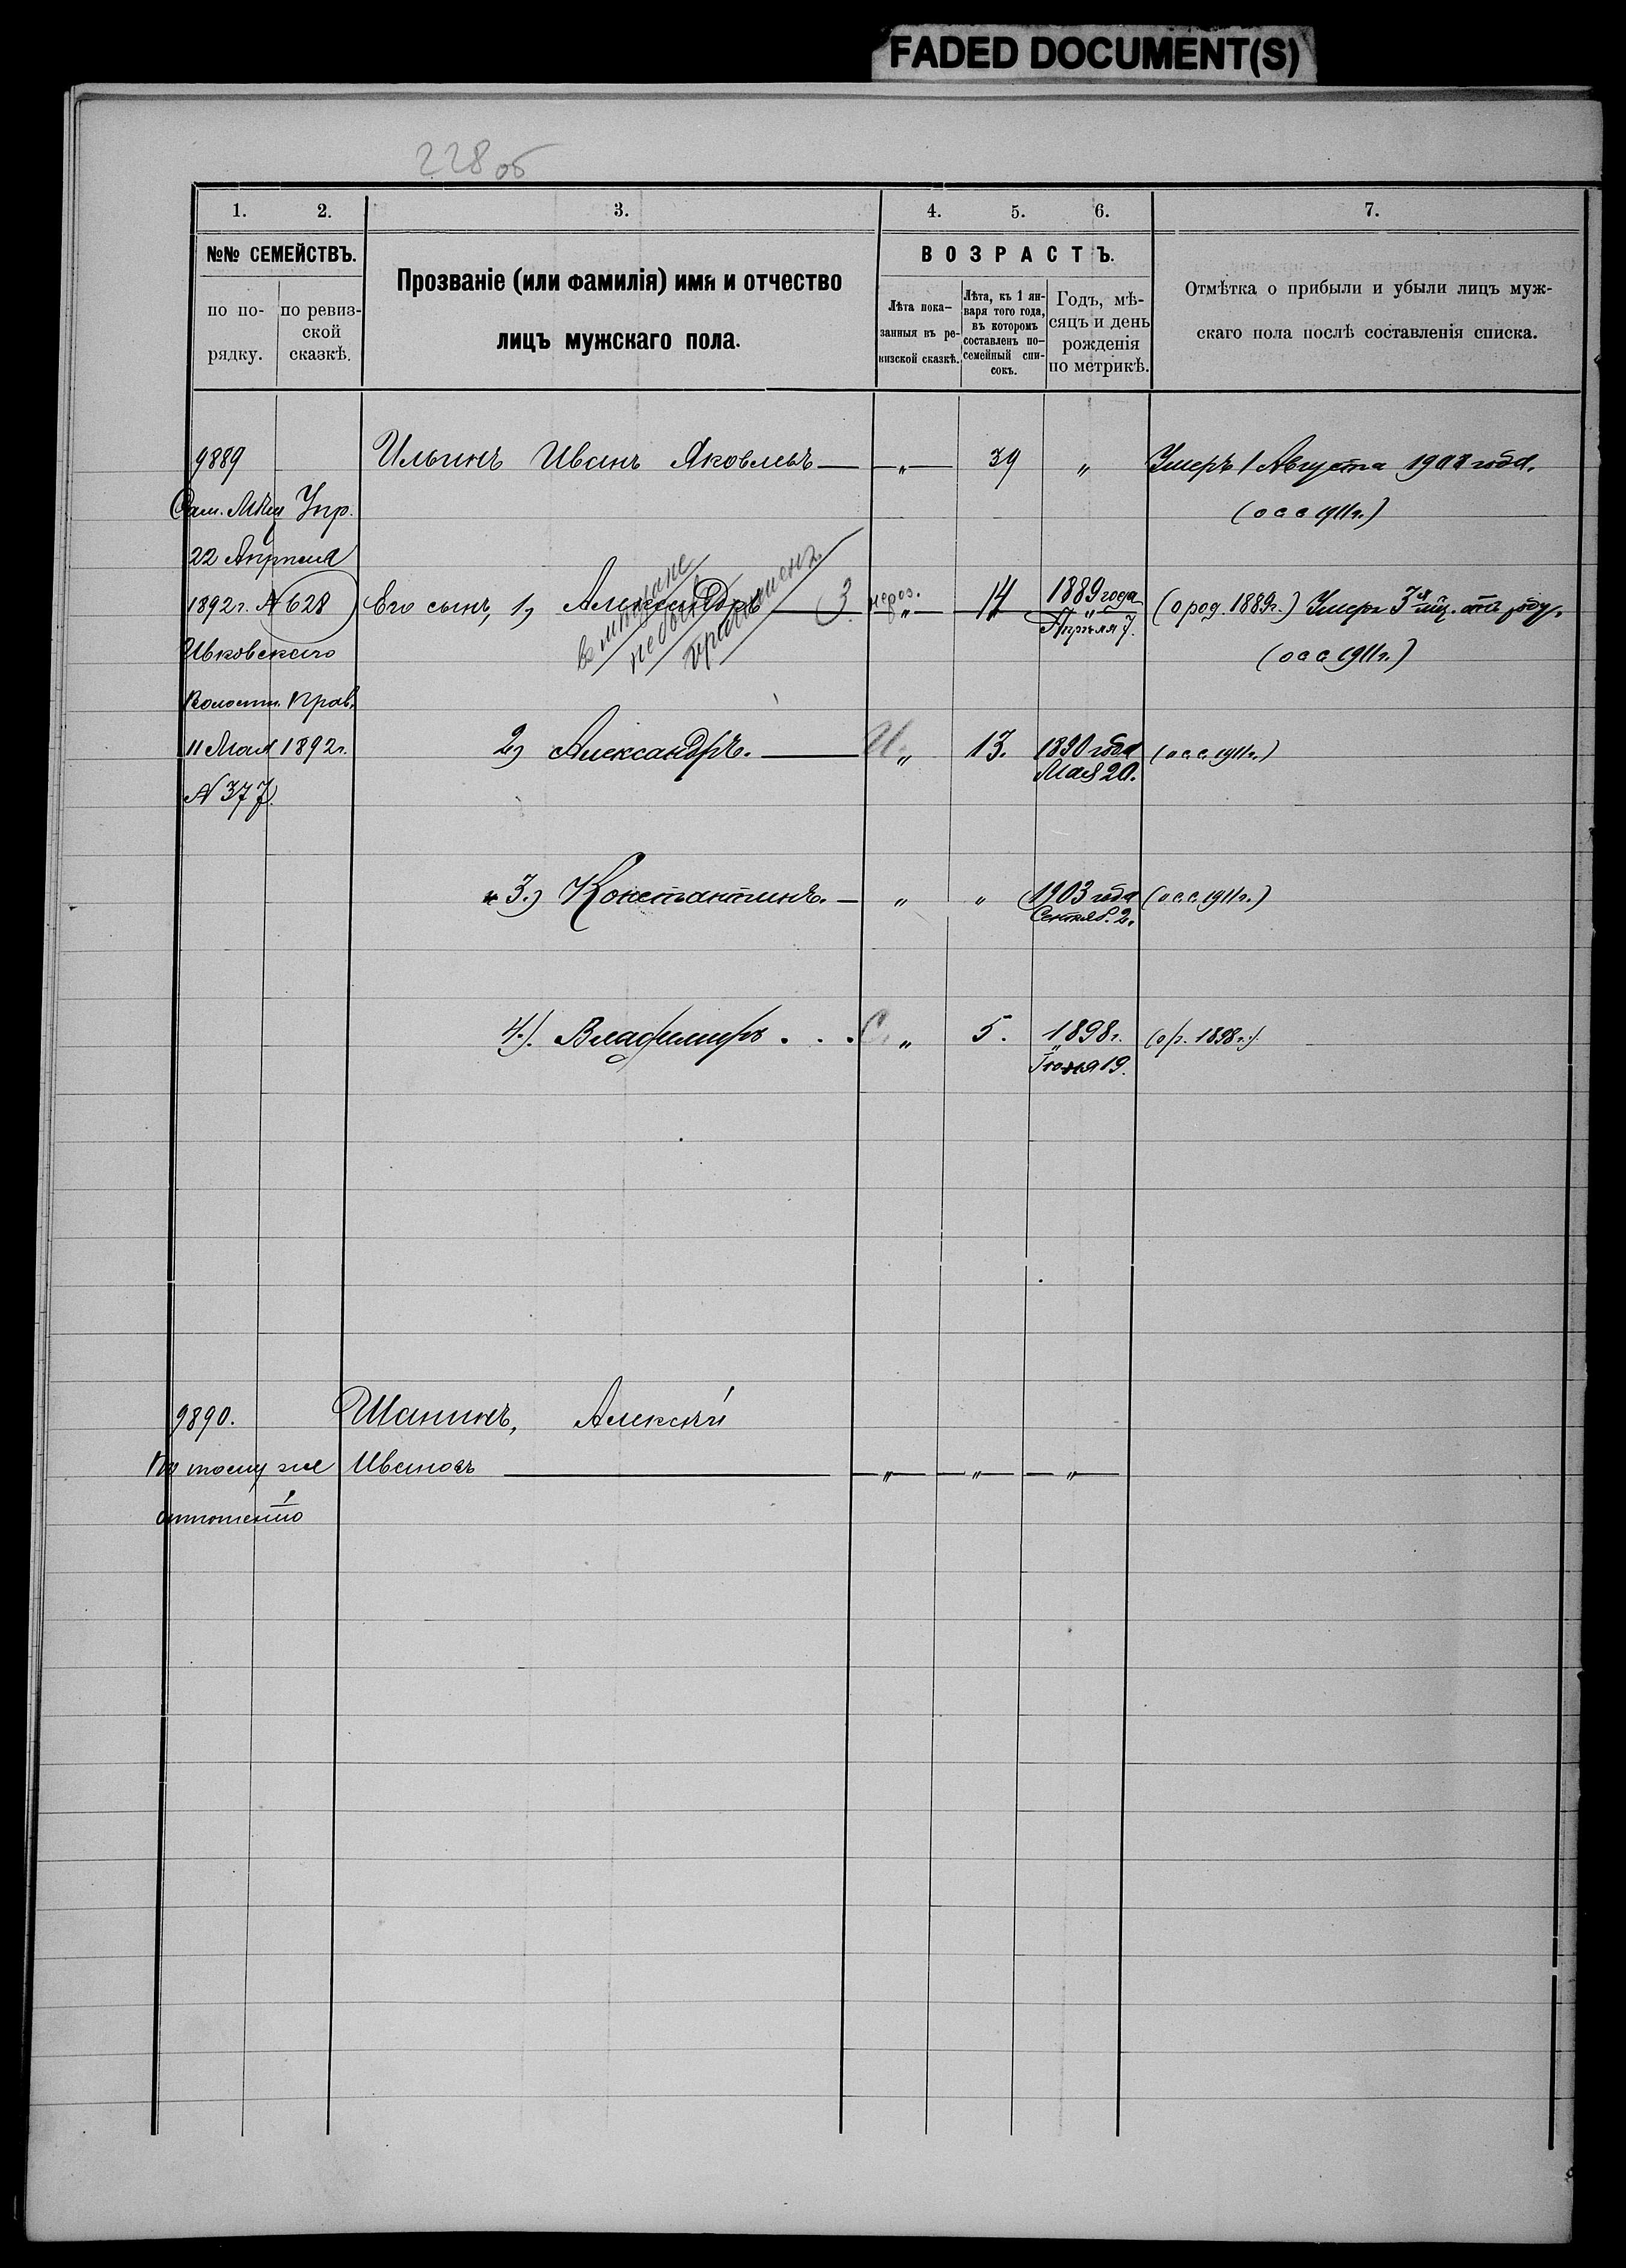 FADED DOCUMENT(S)
228 об
1. 2. 3. 4. 5. 6. 7.
№№ СЕМЕЙСТВЪ.
по по-
рядку.
по ревиз-
ской
сказкѣ.
Прозваніе (или фамилія) имя и отчество
лицъ мужскаго пола.
ВОЗРАСТЪ.
Лѣта пока-
занныя въ ре-
визской сказкѣ.
Лѣта, къ 1 ян-
варя того года,
въ которомъ
составленъ по-
семейный спи-
сокъ.
Годъ, мѣ-
сяцъ и день
рожденія
по метрикѣ.
Отмѣтка о прибыли и убыли лицъ муж-
скаго пола послѣ составленія списка.
9889 Ильинъ Иванъ Яковлевъ — „ — 39 „ Умеръ 1 Августа 1908 года.
Сам. Мѣщ Упр. (о с с 1911 г.)
22 Апреля
1892 г. № 628 Его сынъ, 1) Александръ 3 „ 14 1889 года (о род. 1889г.) Умеръ 3х мѣц. отъ роду.
Апрѣля 7.
Ивковскаго (о с с 1911 г.)
Волостн. Прав.
11 Мая 1892 г. 2) Александръ. — И „ 13. 1890 года (о с с. 1911 г.)
Мая 20.
№ 377.
3.) Константинъ. — „ „ 1903 года (о с с. 1911 г.)
Сентяб. 2.
4.). Владимиръ . . . С. „ 5. 1898 г. (о р. 1898 г.).
19.
9890. Шанинъ, Алексѣй
По тому же Ивановъ — „ — „ — „ —
отношенію